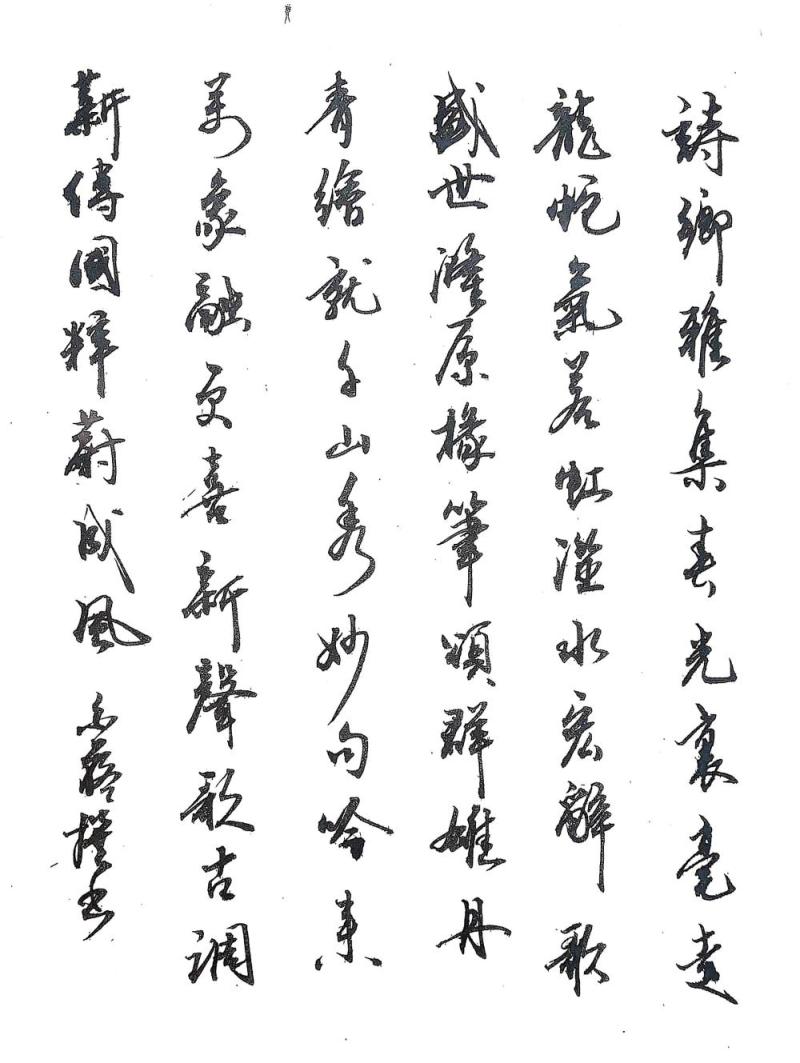 詩鄉雅集春光裏毫走
龍蛇氣若虹水宏辭歌
盛世原椽筆頌群雄丹
青繪就千山秀妙句吟來
萬象融更喜新聲歌古調
薪傳國粹蔚成風 撰書